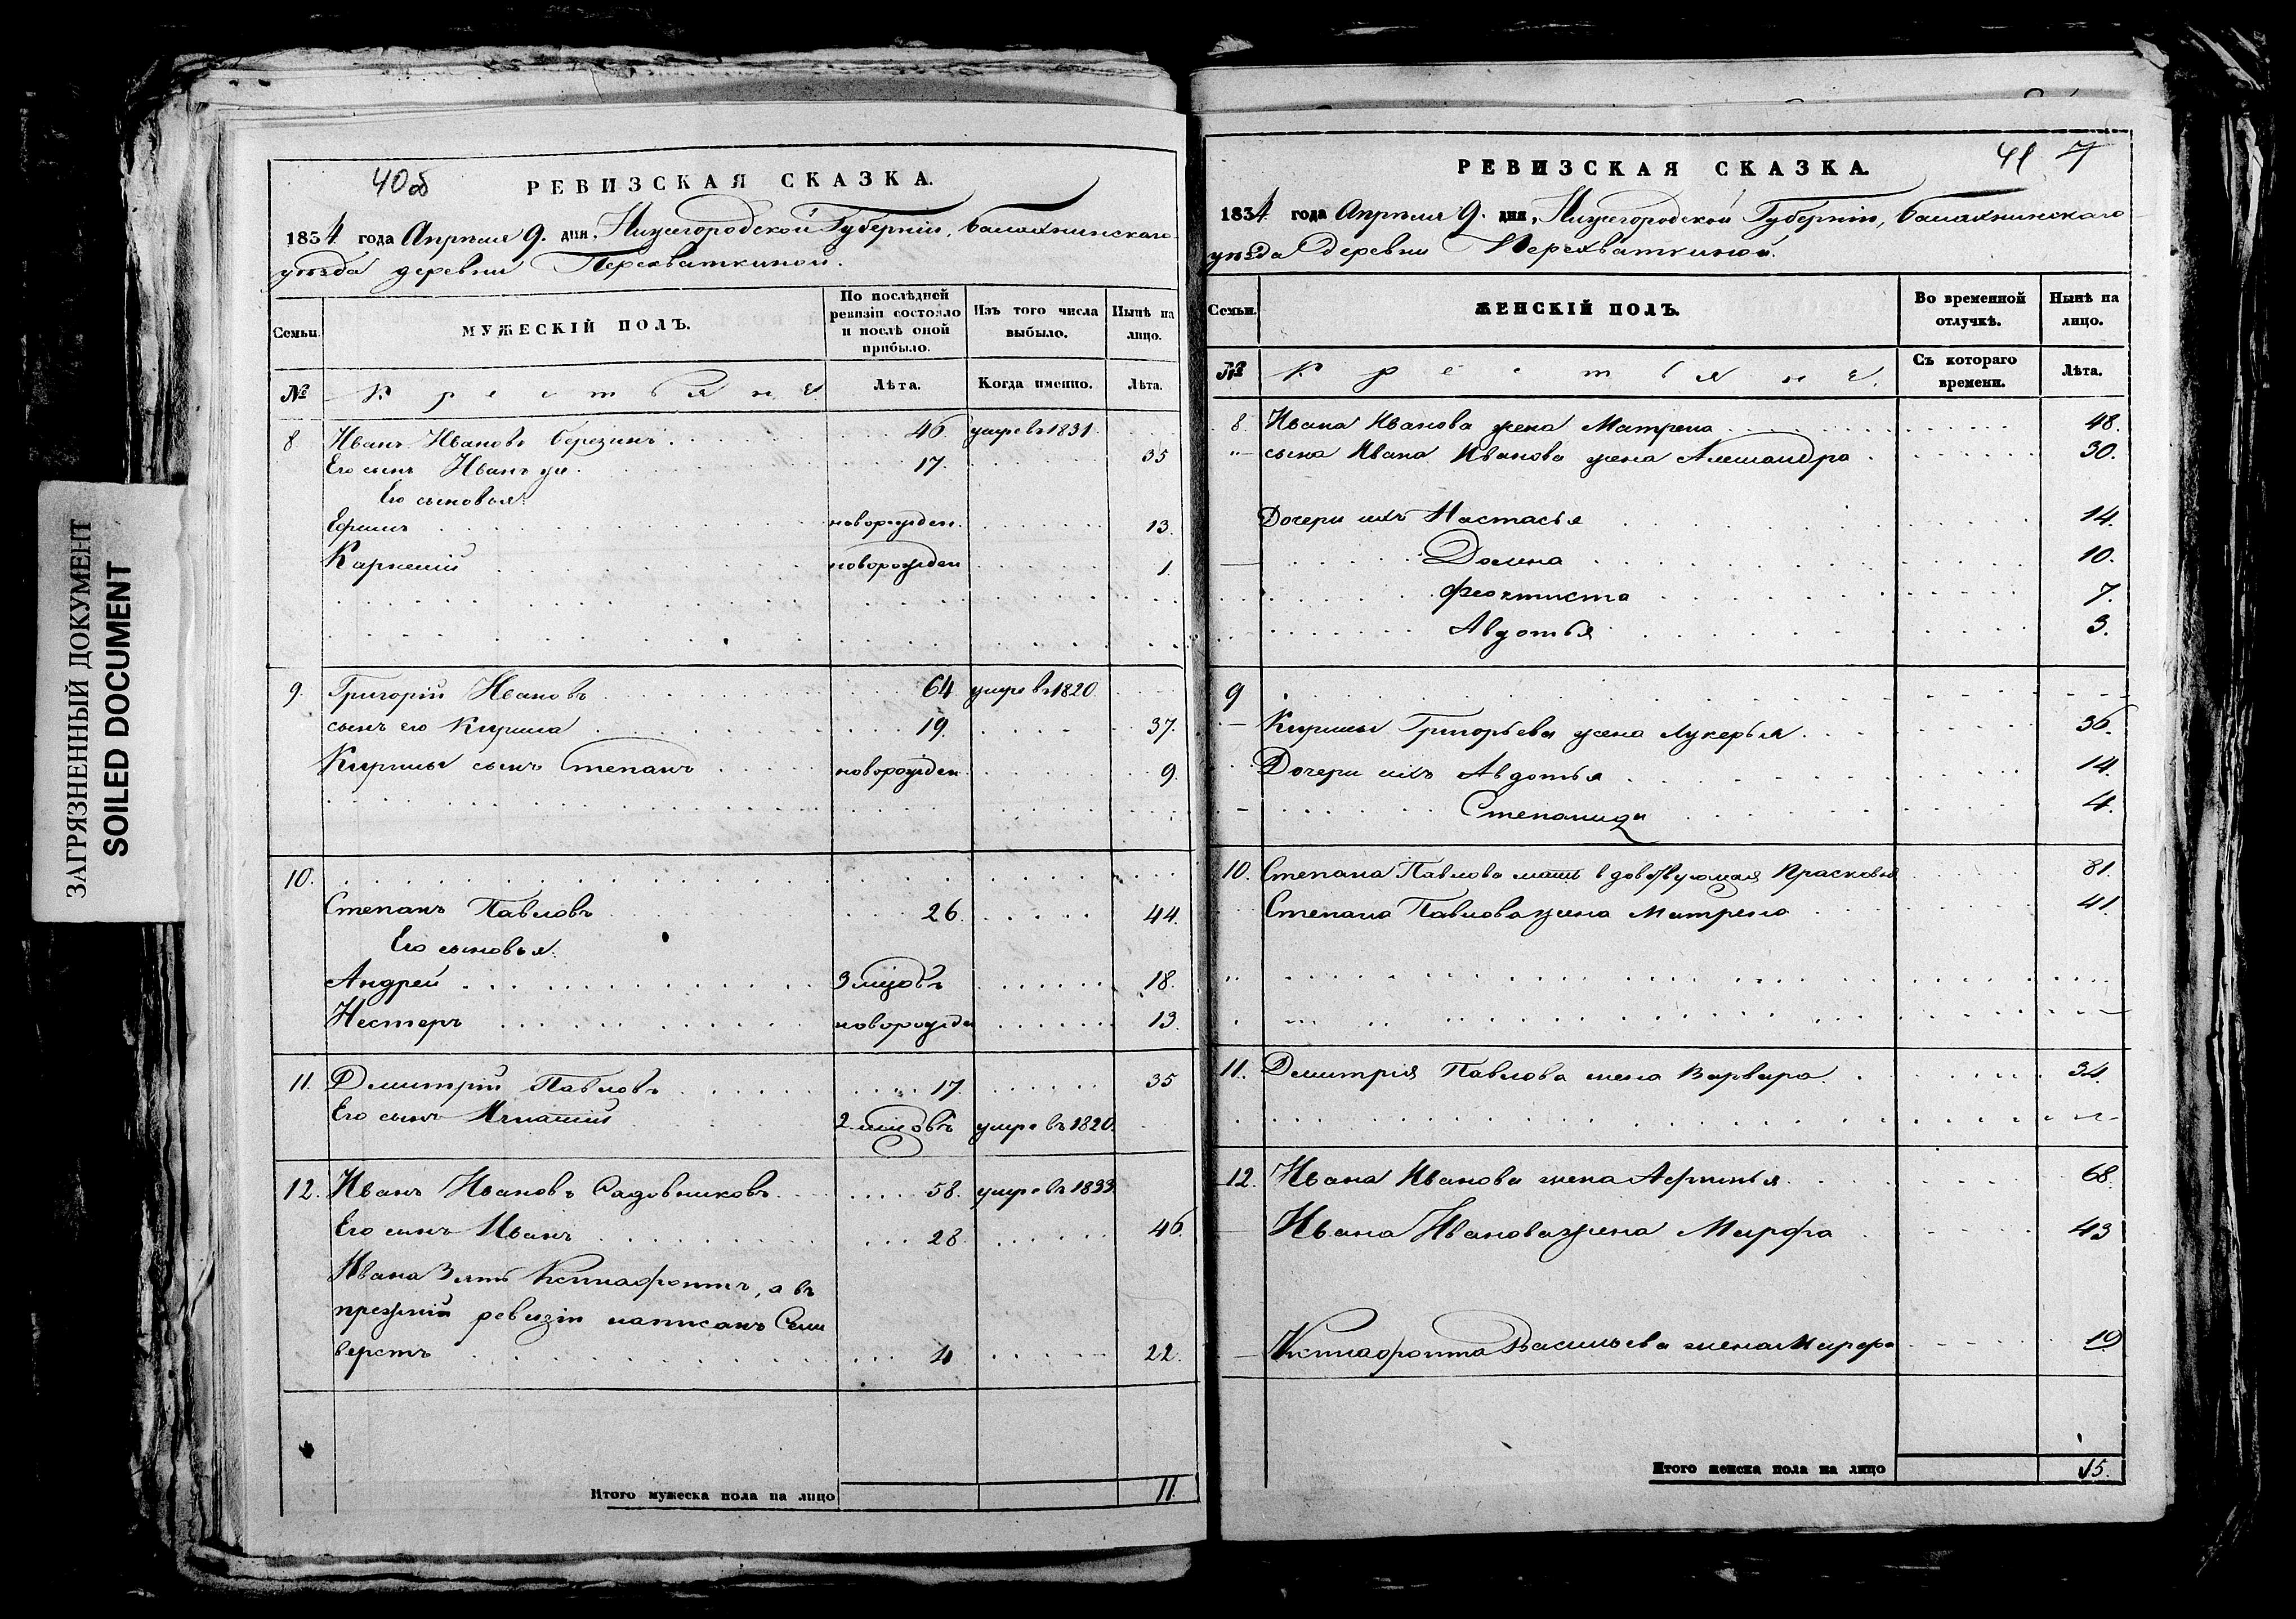 ЗАГРЯЗНЕННЫЙ ДОКУМЕНТ
SOILED DOCUMENT
40об
РЕВИЗСКАЯ СКАЗКА.
1834 года Апреля 9. дня, Нижегородской Губерніи, Балахнинскаго
уезда деревни Перехваткиной.
Семьи. МУЖЕСКІЙ ПОЛЪ. По послѣдней ревизіи состояло и послѣ оной прибыло. Изъ того числа выбыло. Нынѣ на лицо.
№ Крестьяне Лѣта. Когда именно. Лѣта.
8 Иванъ Ивановъ Березинъ 46 умре въ 1831
Его сынъ Иванъ 17. 35
Его сыновья:
Ефимъ новорожден. 13.
Карней новорожден 1.
9. Григорій Ивановъ 64 умре въ 1820
сынъ его Кирила 19. 37.
Кирилы сынъ Степанъ новорожден 9.
10.
Степанъ Павловъ 26. 44.
Его сыновья.
Андрей 3 мцовъ 18.
Нестеръ новорожде 13.
11. Дмитрій Павловъ 17. 35
Его сынъ Игнатий 2 мцовъ умре въ 1820.
12. Иванъ Ивановъ Садовниковъ 58. умре въ 1833
Его сынъ Иванъ 28 46.
Ивана Зять Ксенофонтъ, а въ
прежній ревизіи написанъ Сели
верстъ 4 22.
Итого мужеска пола на лицо 11.
41 7
РЕВИЗСКАЯ СКАЗКА.
1834 года Апреля 9. дня, Нижегородской Губерніи, Балахнинскаго
уезда Деревни Перехваткиной.
Семьи. ЖЕНСКІЙ ПОЛЪ. Во временной отлучкѣ. Нынѣ на лицо.
№ Крестьяне. Съ котораго времени. Лѣта.
8. Ивана Иванова жена Матрена 48.
сына Ивана Иванова жена Александра 30.
Дочери ихъ Настасья 14.
Домна 10.
Феоктиста 7.
Авдотья 3.
9
Кирилы Григорьева жена Лукерья 36.
Дочери ихъ Авдотья 14.
Степанида 4.
10. Степана Павлова мать вдовствующая Прасковья 81.
Степана Павлова жена Матрена 41
11. Дмитрія Павлова жена Варвара 34.
12. Ивана Иванова жена Афимья 68.
Ивана Иванова жена Марфа 43
Ксенофонта Васильева жена Марфа 19
Итого женска пола на лицо 15.